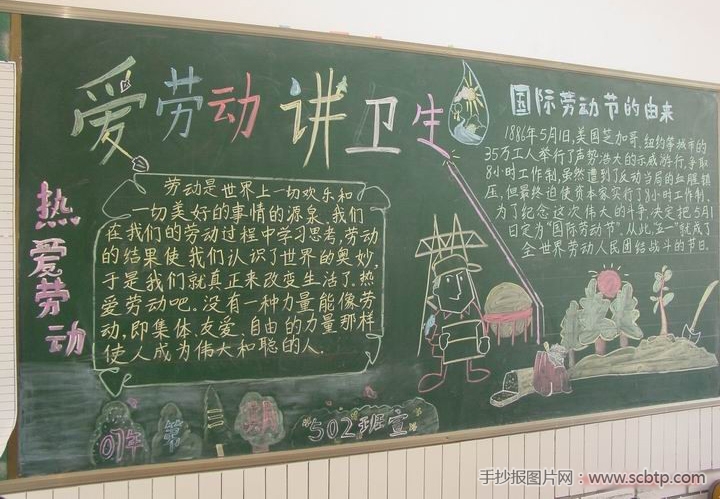 爱劳动讲卫生
热爱劳动
劳动是世界上一切欢乐和
一切美好的事情的源泉。我们
在我们的劳动过程中学习思考,劳动
的结果使我们认识了世界的奥妙,
于是我们就真正来改变生活了。热
爱劳动吧。没有一种力量能像劳
动,即集体、友爱、自由的力量那样
使人成为伟大和聪的人.
国际劳动节的由来
1886年5月1日,美国芝加哥、纽约等城市的
35万工人举行了声势浩大的示威游行,争取
8小时工作制。虽然遭到了反动当局的血腥镇
压,但最终迫使资本家实行了8小时工作制。
为了纪念这次伟大的斗争,决定把5月1
日定为“国际劳动节”。从此,“五一”就成了
全世界劳动人民团结战斗的节日.
07年 第 期
502班宣
手抄报图片网:www.scbtp.com